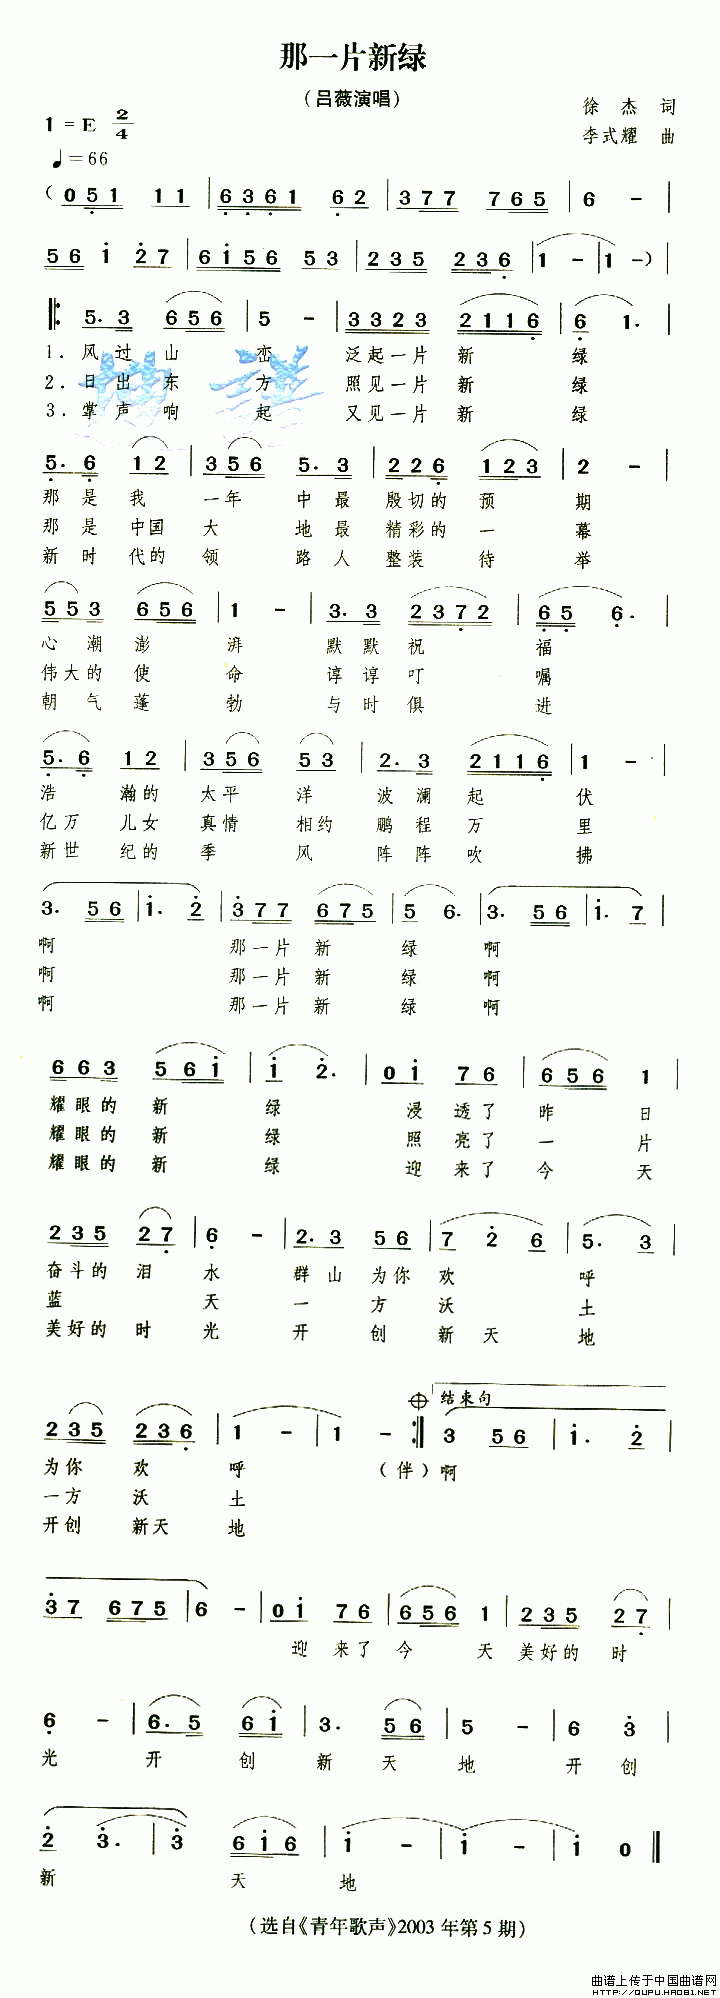 那一片新绿
(吕薇演唱)
徐杰 词
1=E 2/4
李式耀 曲
♩=66
(0 5 1 1 1 | 6 3 6 1 6 2 | 3 7 7 7 6 5 | 6 - |
5 6 i 2 7 | 6 i 5 6 5 3 | 2 3 5 2 3 6 | 1 - | 1 -) |
5. 3 6 5 6 | 5 - | 3 3 2 3 2 1 1 6 | 6 1. |
1.风过山 峦 泛起一片 新 绿
2.日出东 方 照见一片 新 绿
3.掌声响 起 又见一片 新 绿
5. 6 1 2 | 3 5 6 5. 3 | 2 2 6 1 2 3 | 2 - |
那是我 一年 中最 殷切的 预 期
那是中国大 地最 精彩的 一 幕
新时代的领 路人 整装 待 举
5 5 3 6 5 6 | 1 - | 3. 3 2 3 7 2 | 6 5 6. |
心潮澎 湃 默默祝 福
伟大的使 命 谆谆叮 嘱
朝气蓬 勃 与时俱 进
5. 6 1 2 | 3 5 6 5 3 | 2. 3 2 1 1 6 | 1 - |
浩 瀚的 太平 洋 波澜起 伏
亿万 儿女 真情 相约 鹏程万 里
新世 纪的 季 风 阵阵吹 拂
3. 5 6 | i. 2 | 3 7 7 6 7 5 | 5 6. | 3. 5 6 | i. 7 |
啊 那一片 新 绿 啊
啊 那一片 新 绿 啊
啊 那一片 新 绿 啊
6 6 3 5 6 i | i 2. | 0 i 7 6 | 6 5 6 1 |
耀眼的 新 绿 浸透了 昨 日
耀眼的 新 绿 照亮了 一 片
耀眼的 新 绿 迎来了 今 天
2 3 5 2 7 | 6 - | 2. 3 5 6 | 7 2 6 | 5. 3 |
奋斗的 泪 水 群山为你 欢 呼
蓝 天 一 方 沃 土
美好的 时 光 开 创 新天 地
结束句
2 3 5 2 3 6 | 1 - | 1 - :| 3 5 6 | i. 2 |
为你 欢 呼 (伴)啊
一方 沃 土
开创 新天 地
3 7 6 7 5 | 6 - | 0 i 7 6 | 6 5 6 1 | 2 3 5 2 7 |
迎来了 今 天 美好的 时
6 - | 6. 5 6 i | 3. 5 6 | 5 - | 6 3 |
光 开 创 新 天 地 开创
2 3. | 3 6 i 6 | i - | i - | i 0 ‖
新 天 地
(选自《青年歌声》2003年第5期)
曲谱上传于中国曲谱网
HTTP://QUPU.HAO81.NET